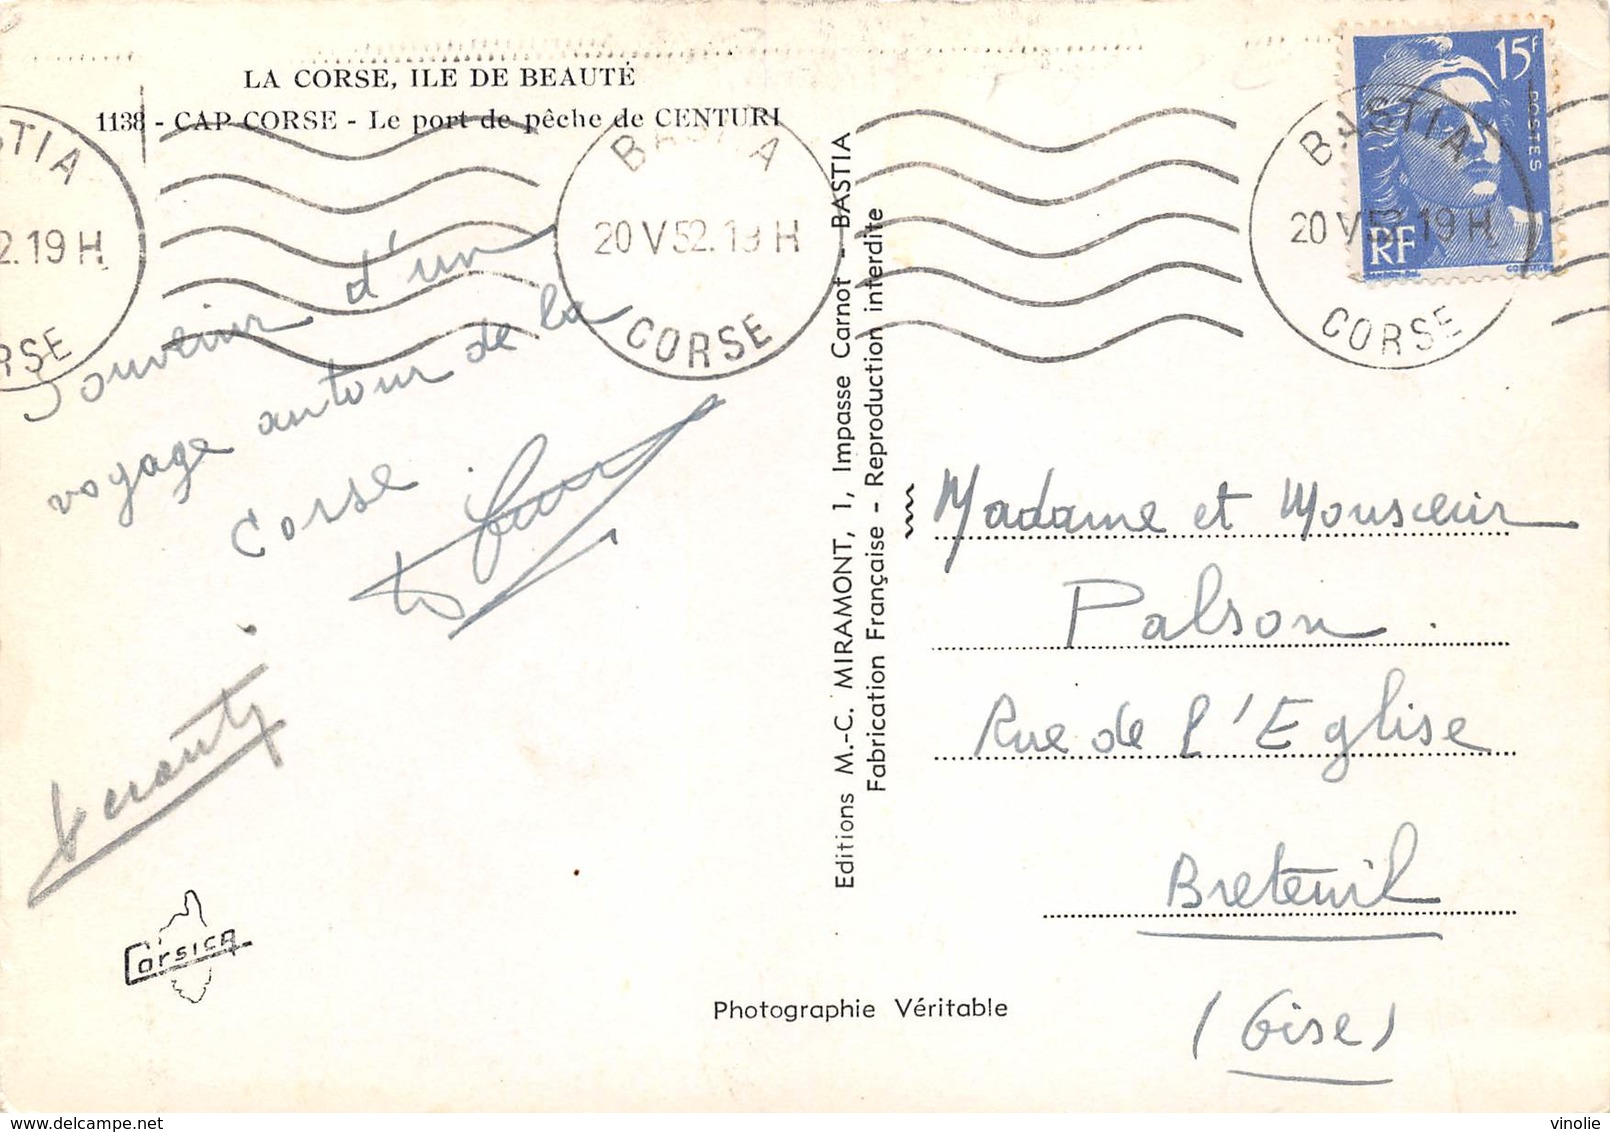 LA CORSE, ILE DE BEAUTÉ
1138 - CAP CORSE - Le port de pêche de CENTURI
BASTIA
2.19 H
CORSE
BASTIA
20 V 52.19 H
CORSE
BASTIA
20 V 52.19 H
CORSE
15F
POSTES
RF
Souvenir d'un
voyage autour de la
Corse
Corsica
Editions M.-C. MIRAMONT, 1, Impasse Carnot - BASTIA
Fabrication Française - Reproduction interdite
Madame et Monsieur
Palson.
Rue de l'Eglise
Breteuil
(Oise)
Photographie Véritable
delcampe.net
vinolie